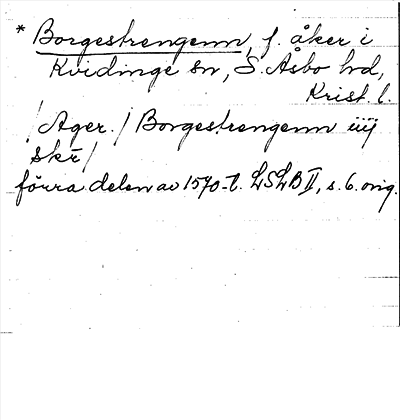 * Borgestrengenn, f. åker i
Kvidinge sn, S. Åsbo hd,
Krist. l.
/Ager./ Borgestrengenn iiij
skr̄/
förra delen av 1570-t. LSLB II, s. 6. orig.